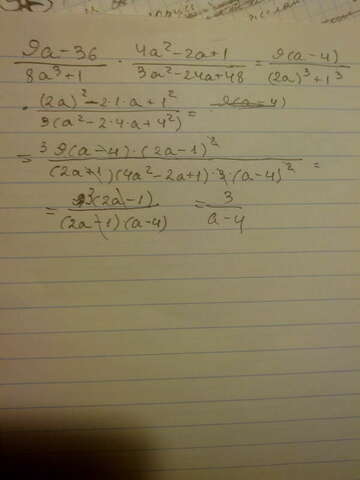 (9a-36)/(8a³+1) · (4a²-2a+1)/(3a²-24a+48) = 9(a-4)/((2a)³+1³)
· ((2a)²-2·1·a+1²)/(3(a²-2·4·a+4²)) =
= (³9(a-4)·(2a-1)²)/((2a+1)(4a²-2a+1)·3·(a-4)²) =
= 3(2a-1)/((2a-1)(a-4)) = 3/(a-4)